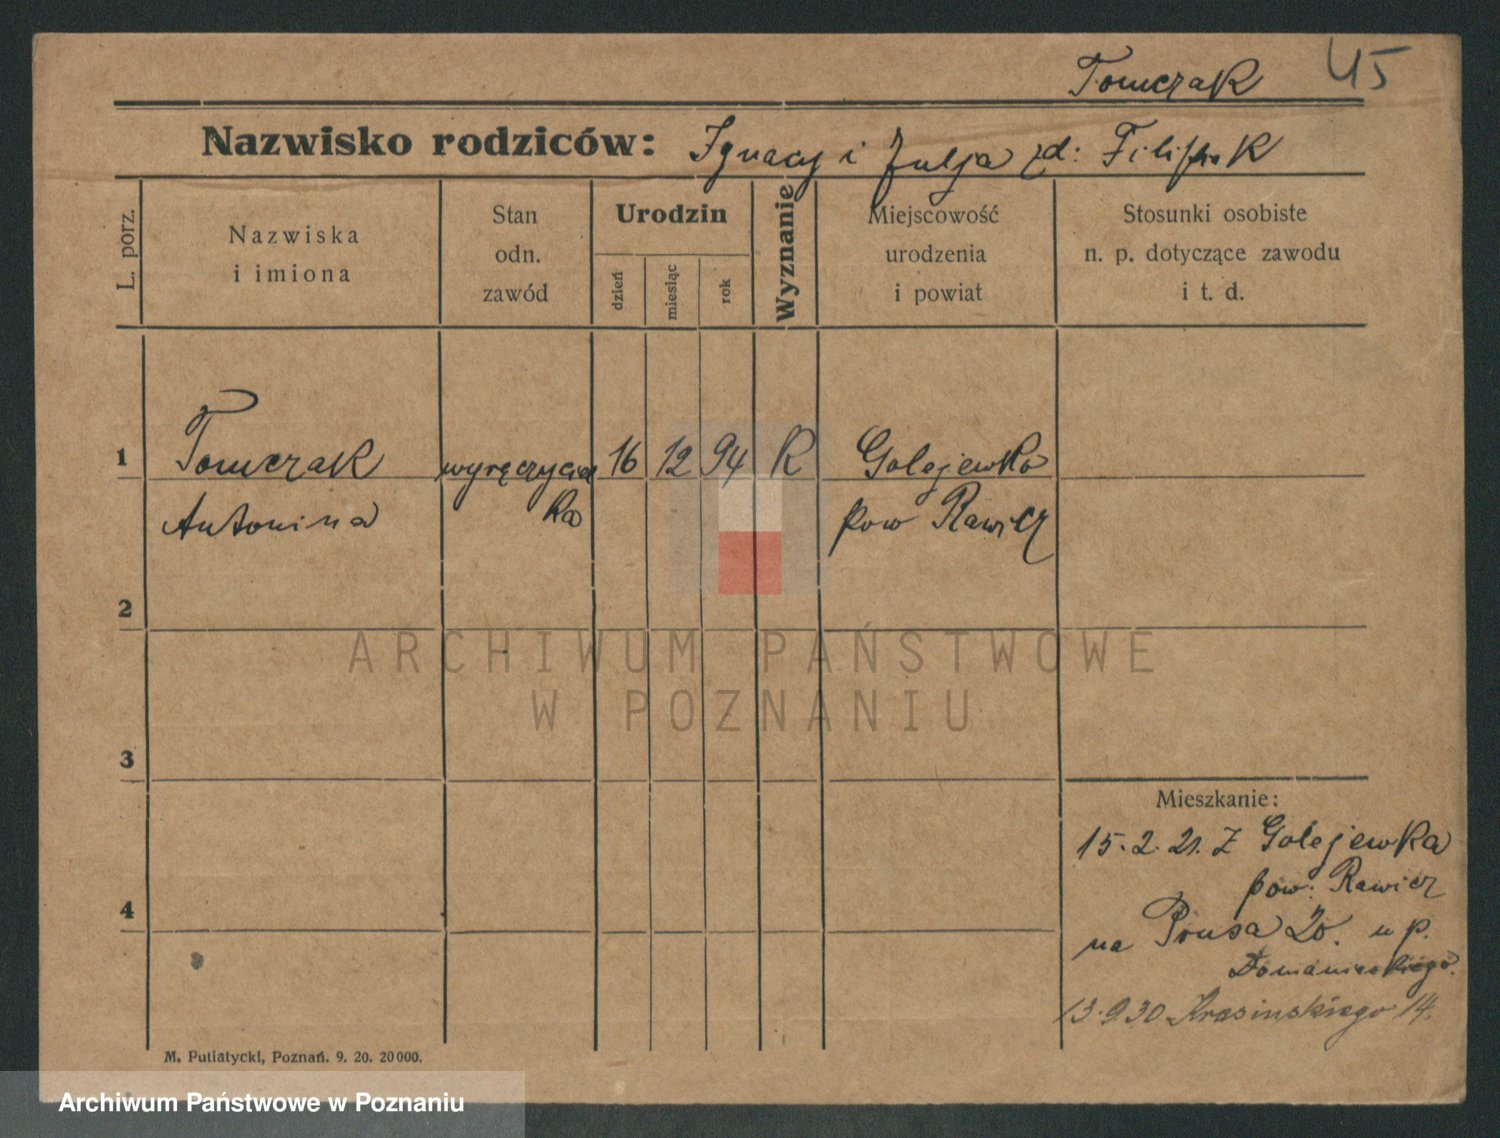 Tomczak 45
Nazwisko rodziców: Ignacy i Julja zd: Filipiak
L. porz.
Nazwiska
i imiona
Stan
odn.
zawód
Urodzin
dzień
miesiąc
rok
Wyznanie
Miejscowość
urodzenia
i powiat
Stosunki osobiste
n. p. dotyczące zawodu
i t. d.
1 Tomczak wyręczyciel 16 12 94 K Golejewko
Antonina ka pow Rawicz
2
ARCHIWUM PAŃSTWOWE
W POZNANIU
3
Mieszkanie:
15.2.21. z Golejewka
pow. Rawicz
4
na Prusa 20. u p.
13.9.30 Krasinskiego 14.
M. Putiatycki, Poznań. 9. 20. 20000.
Archiwum Państwowe w Poznaniu